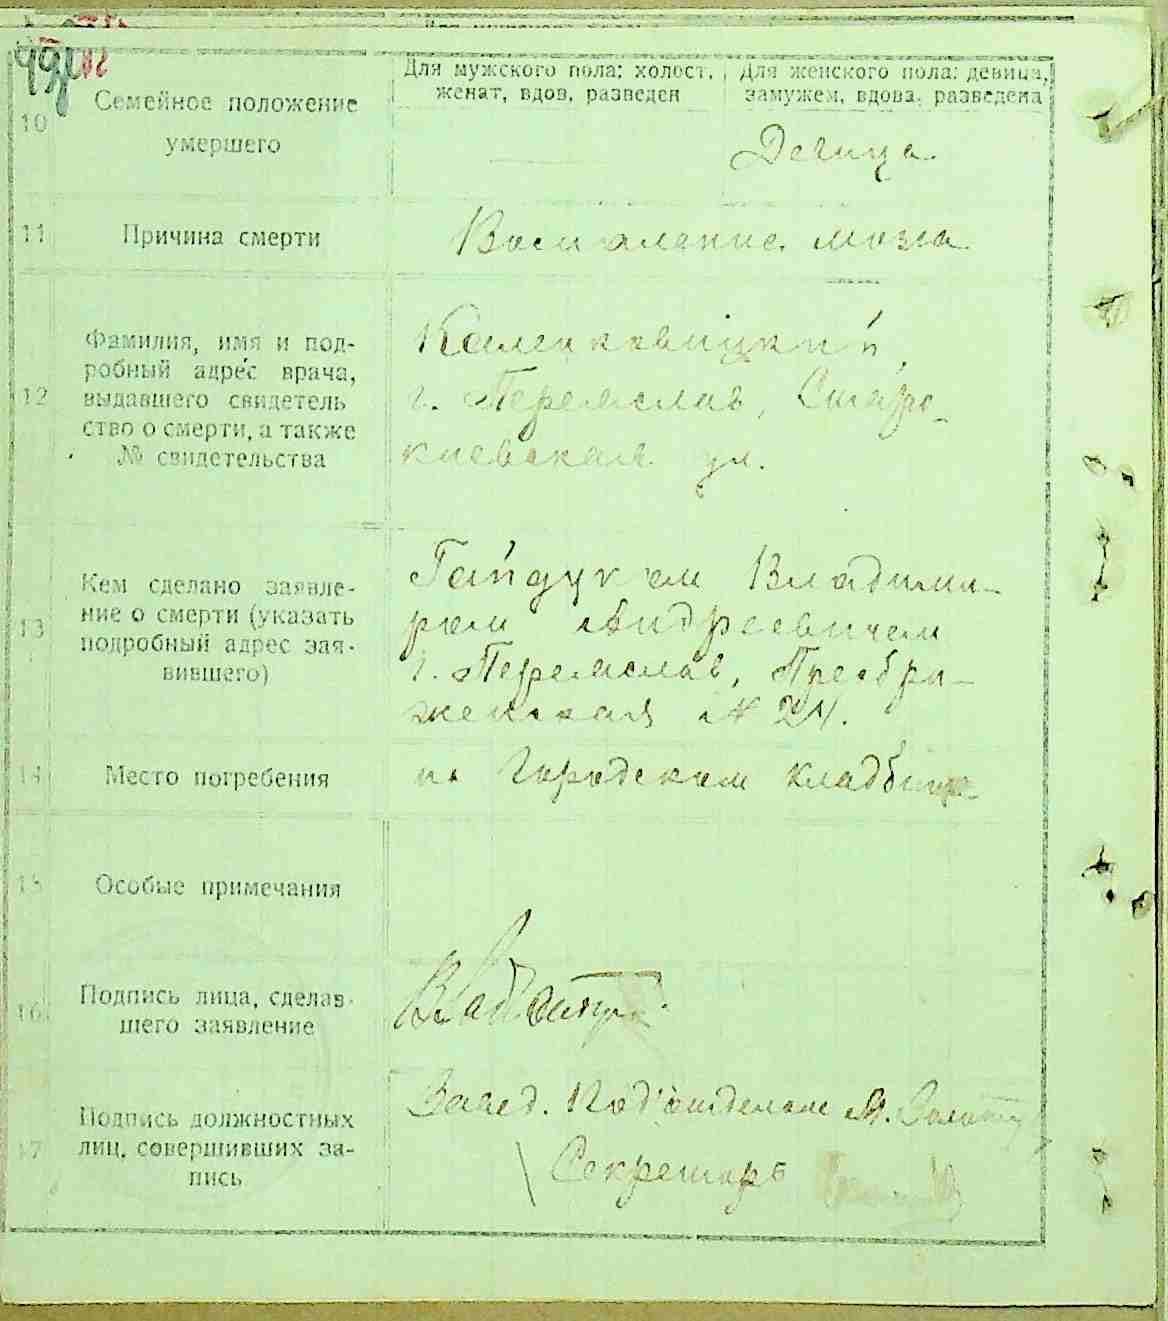 Для мужского пола: холост,
женат, вдов, разведен
Для женского пола: девица,
замужем, вдова, разведена
10
Семейное положение
умершего
Девица.
11
Причина смерти
Воспаление мозга
12
Фамилия, имя и под-
робный адрес врача,
выдавшего свидетель
ство о смерти, а также
№ свидетельства
г. Переяслав, Старо-
киевская ул.
13
Кем сделано заявле-
ние о смерти (указать
подробный адрес зая-
вившего)
Гайдуком Владими-
ром Андреевичем
г. Переяслав, Преобра-
женская № 24.
14
Место погребения
на Городском кладбище
15
Особые примечания
16
Подпись лица, сделав-
шего заявление
17
Подпись должностных
лиц, совершивших за-
пись
Завед. Под'отделом
Секретарь